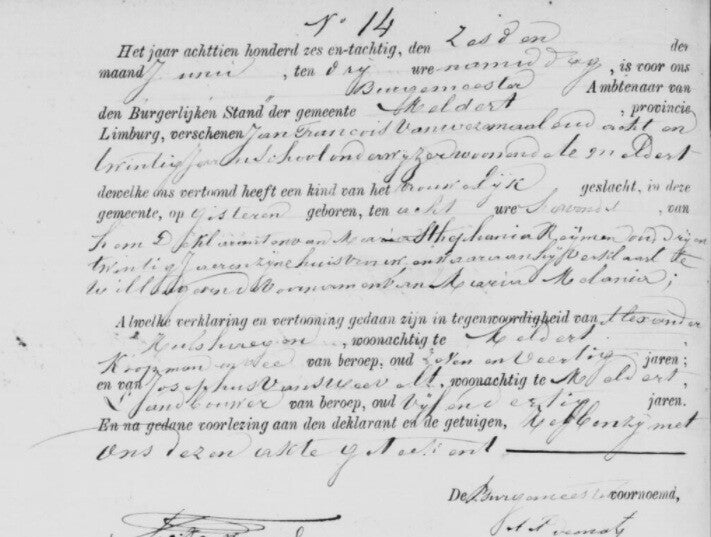 N° 14
Het jaar achttien honderd zes en-tachtig, den zesden der
maand Junij, ten drij ure namiddag, is voor ons
Burgemeester Ambtenaar van
den Burgerlijken Stand der gemeente Meldert, provincie
Limburg, verschenen Jan Francois Vanwezemaal oud acht en
twintig Jaren schoolonderwyzer woonende te Meldert
dewelke ons vertoond heeft een kind van het vrouwelyk geslacht, in deze
gemeente, op gisteren geboren, ten acht ure savonds, van
hem Deklarant en van Maria Sthephania Reymen oud dry en
twintig Jaeren zine huisvrouw en waaraan hy verklaard te
willen geven de Voornamen van Maria Melania;
Alwelke verklaring en vertooning gedaan zijn in tegenwoordigheid van Alexander
, woonachtig te Meldert
Koopman van beroep, oud zeven en veertig jaren;
en van Josephus, woonachtig te Meldert,
Landbouwer van beroep, oud vijf en dertig jaren.
En na gedane voorlezing aan den deklarant en de getuigen, Hebben zy met
ons dezen akte geteekent
De Burgemeester voornoemd,